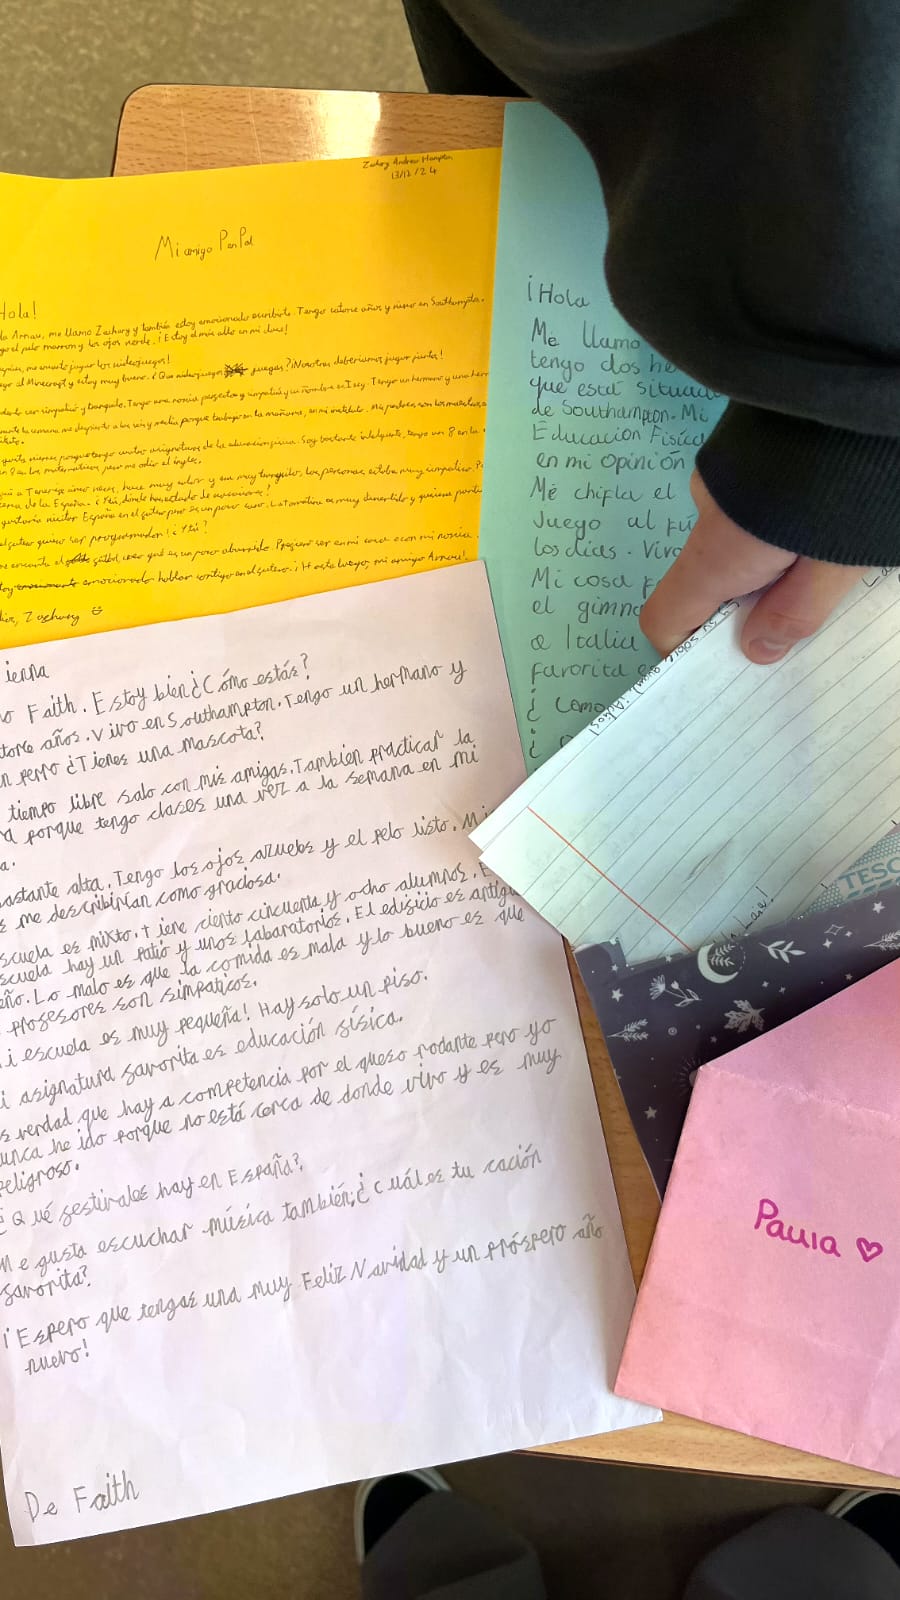 Zachary Andrew Hampton
13/12/24
Mi amigo PenPal
Hola!
Arnau, me llamo Zachary y también estoy emocionado escribirte. Tengo catorce años y vivo en Southampton.
el pelo marron y los ojos verde. ¡Estoy el más alto en mi clase!
me encanta jugar los videojuegos!
al Minecraft y estoy muy bueno. ¿Que videojuegos juegas? ¡Nosotros deberiamos jugar juntos!
ser simpatico y tranquilo. Tengo una novia perfecta y simpatica y su nombre es Izzy. Tengo un hermano y una
la semana me despierto a las seis y media porque trabajo en la mañana, en mi instituto. Mis padres son los maestros
porque tengo un otro asignatura de la educacion fisica. Soy bastante inteligente, tengo un 8 en la
en las matematicas, pero me odio el ingles.
a Tenerife cinco veces, hace mucho calor y era muy tranquilo, las personas estaba muy simpatico.
cerca de la España. ¿Tú, dónde has estado de vacaciones?
gustaria visitar España en el futuro pero es un poco caro. La tomatina es muy divertido y quiero participar
futuro quiero ser programador! ¿Y tú?
me encanta el fútbol, creo que es un poco aburrido. Prefiero ser en mi casa o con mi novia.
emocionado hablar contigo en el futuro. ¡Hasta luego, mi amigo Arnau!
Zachary
¡Hola
Me llamo
tengo dos he
que está situad
de Southampton. Mi
Educacion Fisic
en mi opinión
Me chifla el
Juego al fú
los dias. Vivo
Mi cosa f
el gimn
a Italia
favorita es
¿ Como
¿
¡Adios!
ienna
o Faith. Estoy bien ¿Cómo estás?
torce años. Vivo en Southampton. Tengo un hermano y
n perro ¿Tienes una mascota?
tiempo libre salo con mis amigas. También practicar la
a porque tengo clases una vez a la semana en mi
a.
astante alta. Tengo los ojos azuels y el pelo listo. Mi
s me describirían como graciosa.
scuela es mixto, tiene ciento cincuenta y ocho alumnos. E
scuela hay un patio y unos labaratorios. El edificio es antigu
eño. Lo malo es que la comida es mala y lo bueno es que
profesores son simpaticos.
i escuela es muy pequeña! Hay solo un piso.
i asignatura favorita es educación física.
s verdad que hay a competencia por el queso rodante pero yo
unca he ido porque no está cerca de donde vivo y es muy
peligroso.
¿Qué festivales hay en España?
Me gusta escuchar música también; ¿Cuál es tu cación
favorita?
¡Espero que tengas una muy Feliz Navidad y un próspero año
nuevo!
De Faith
TESCO
Paula ♡